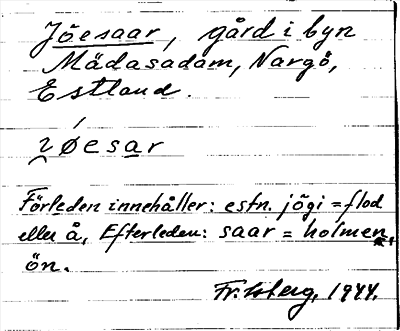 Jõesaar, gård i byn
Mädasadam, Nargö,
Estland.
Förleden innehåller: estn. jõgi = flod
eller å, Efterleden: saar = holmen,
ön.
1944.